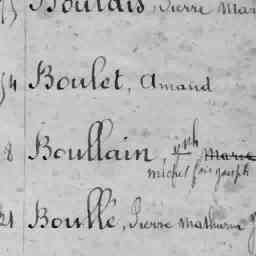 Boulais, Pierre Mar
54 Boulet, Amand
8 Boullain, Marie
michel fois joseph
21 Boullé, Pierre Mathurin